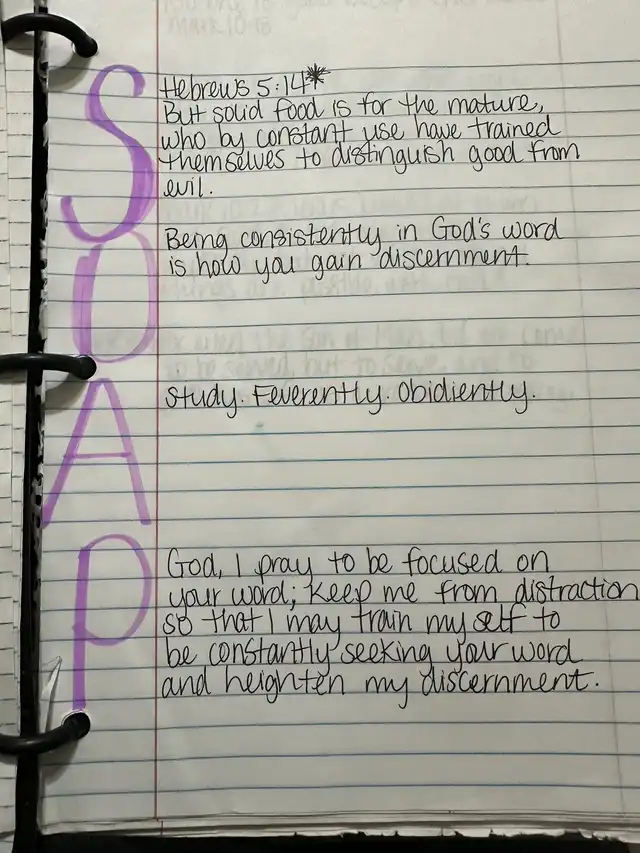 Mark 10:18
S
Hebrews 5:14*
But solid food is for the mature,
who by constant use have trained
themselves to distinguish good from
evil.
O
Being consistently in God's word
is how you gain discernment.
A
Study. Feverently. Obidiently.
P
God, I pray to be focused on
your word; Keep me from distraction
so that I may train my self to
be constantly seeking your word
and heighten my discernment.